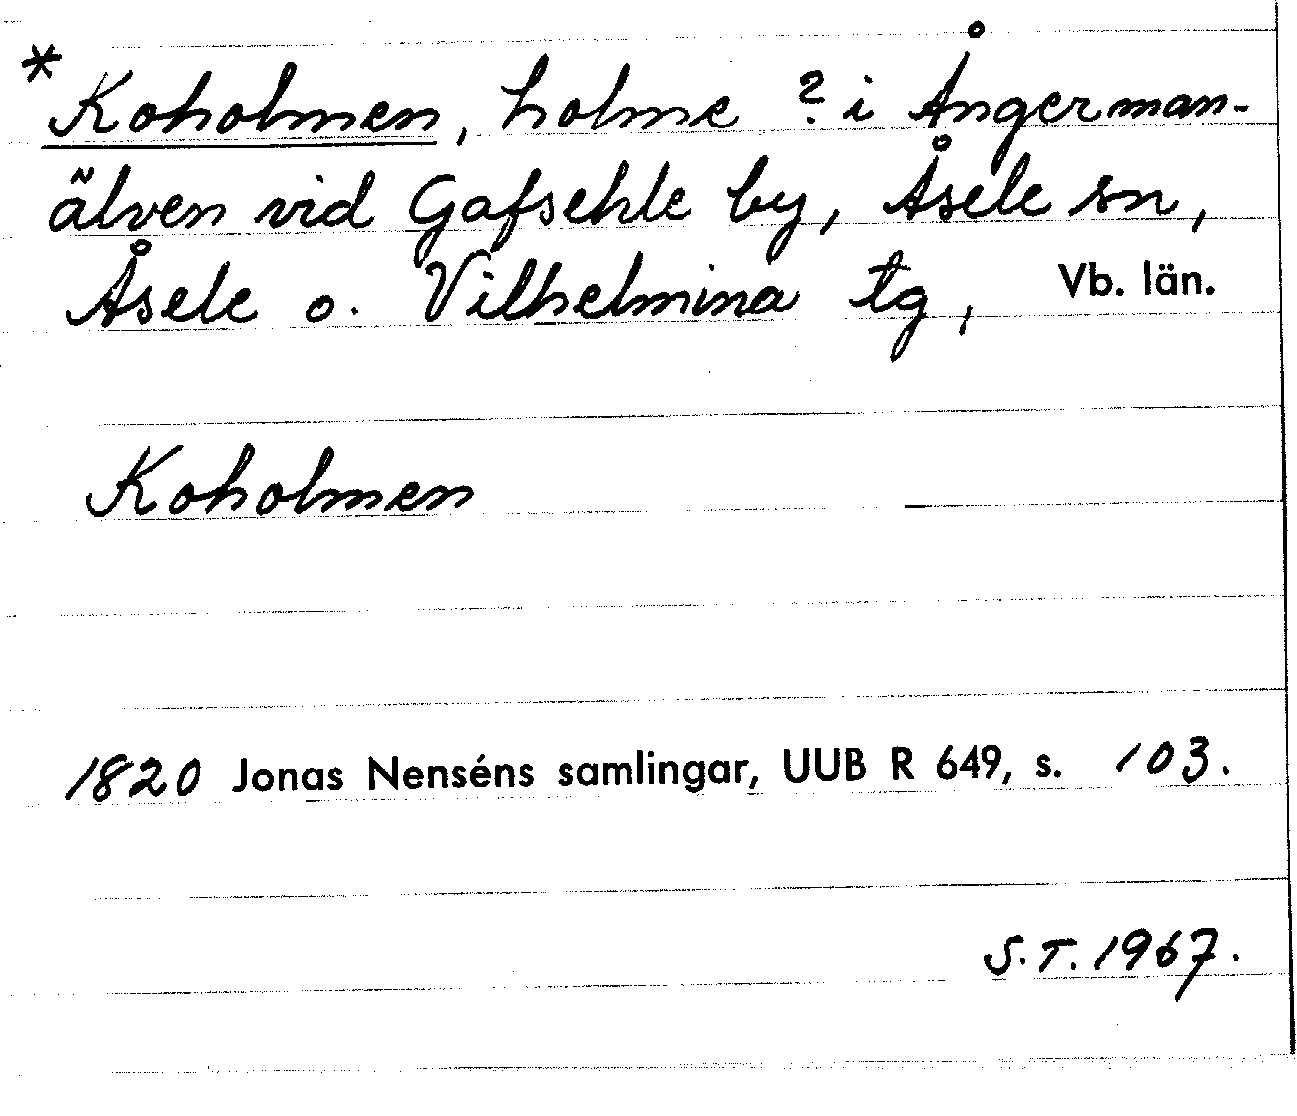 *Koholmen, holme ? i Ångerman-
älven vid Gafsehle by, Åsele sn,
Åsele o. Vilhelmina tg, Vb. län.
Koholmen
1820 Jonas Nenséns samlingar, UUB R 649, s. 103.
S.T. 1967.